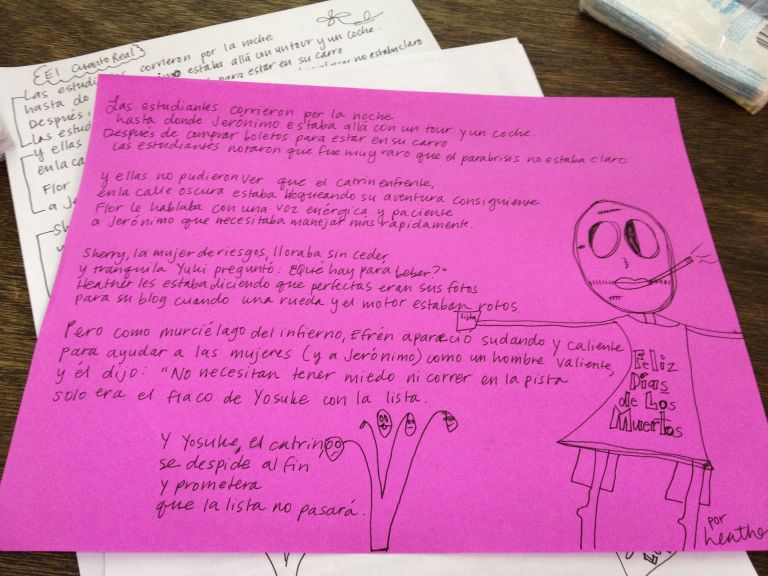 {El Cuento Real}
Las estudiantes corrieron por la noche
hasta do estaba allá con un tour y un coche.
Después, para estar en su carro
Las estud no estaba claro
y ellas
en la ca
Flor
a Je
Sh
Las estudiantes corrieron por la noche
hasta donde Jerónimo estaba allá con un tour y un coche.
Después de comprar boletos para estar en su carro
las estudiantes notaron que fue muy raro que el parabrisis no estaba claro
y ellas no pudieron ver que el catrin enfrente,
en la calle oscura estaba bloqueando su aventura consiguiente
Flor le hablaba con una voz enérgica y paciente
a Jerónimo que necesitaba manejar más rápidamente.
Sherry, la mujer de riesgos, lloraba sin ceder
y tranquila Yuki preguntó: ¿Qué hay para beber?"
Heather les estaba diciendo que perfectas eran sus fotos
para su blog cuando una rueda y el motor estaban rotos.
Pero como murciélago del infierno, Efrén apareció sudando y caliente
para ayudar a las mujeres (y a Jerónimo) como un hombre valiente,
y él dijo: "No necesitan tener miedo ni correr en la pista
solo era el flaco de Yosuke con la lista.
Y Yosuke, el catrin,
se despide al fin
y prometera
que la lista no pasará.
lista
Feliz
Días
de Los
Muertos
por
heathe